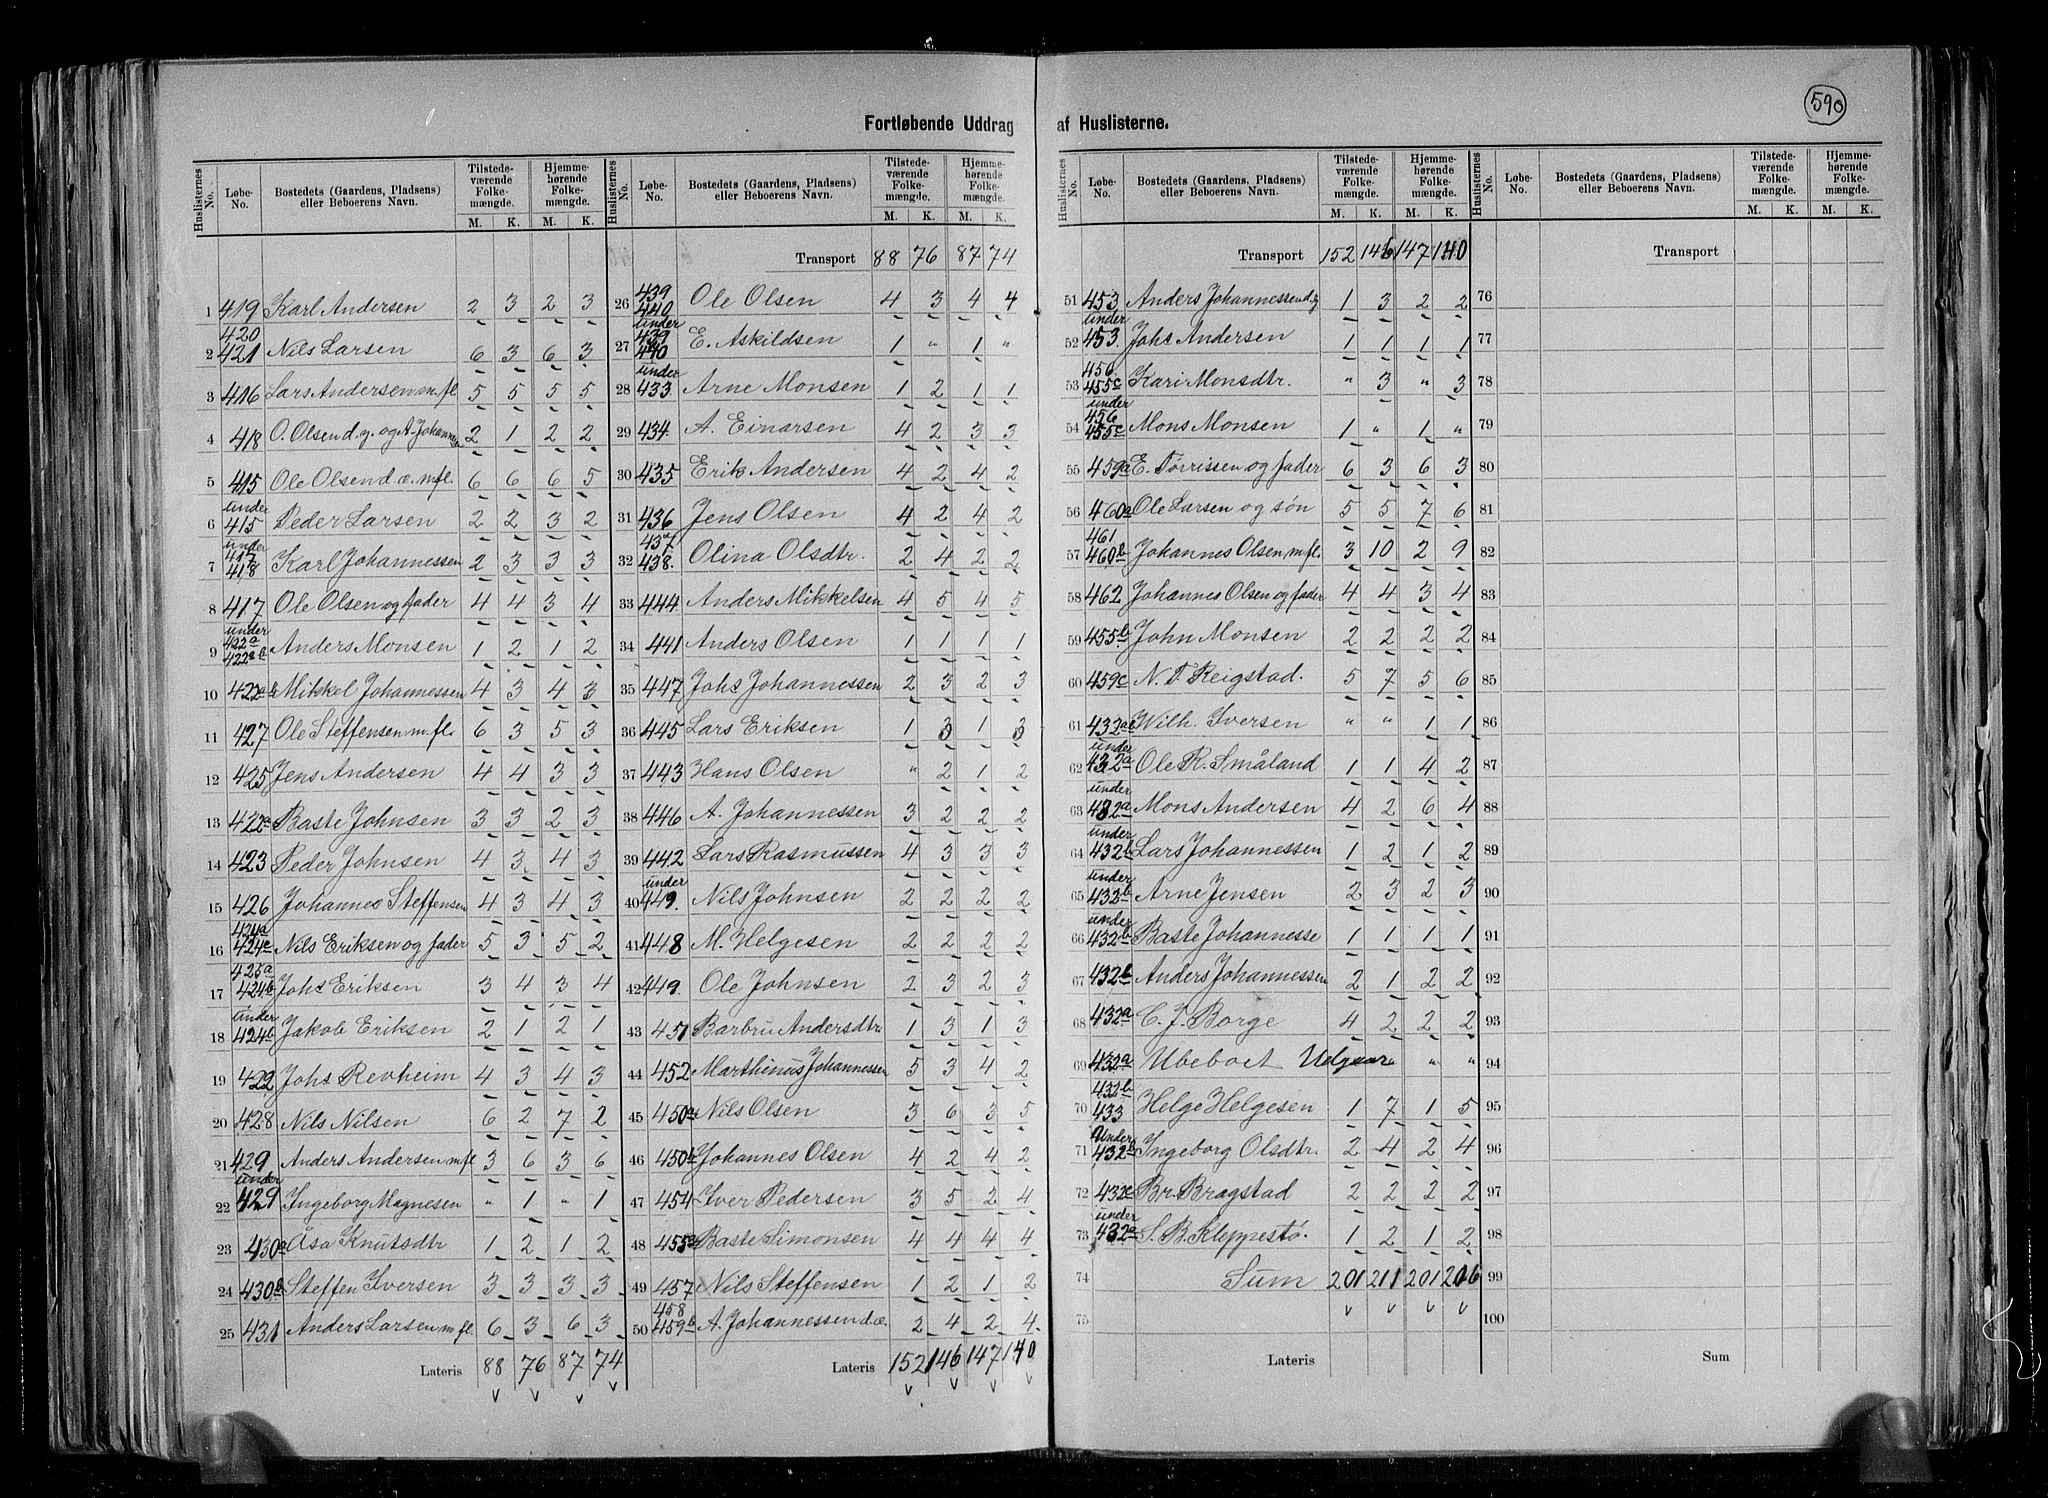 590
Fortløbende Uddrag af Huslisterne.
Huslisternes No. Løbe-No. Bostedets (Gaardens, Pladsens) eller Beboerens Navn. Tilstedeværende Folkemængde. M. K. Hjemmehørende Folkemængde. M. K.
1 419 Karl Andersen 2 3 2 3
2 420 421 Nils Larsen 6 3 6 3
3 416 Lars Andersen m. fl. 5 5 5 5
4 418 O. Olsen d. y. og A. Johannsen 2 1 2 2
5 415 Ole Olsen d. æ. m fl. 6 6 6 5
6 under 415 Peder Larsen 2 2 3 2
7 under 417 418 Karl Johannessen 2 3 3 3
8 417 Ole Olsen og fader 4 4 3 4
9 under 422a Anders Monsen 1 2 1 2
10 Mikkel Johannessen 4 3 4 3
11 427 Ole Steffensen m. fl. 6 3 5 3
12 425 Jens Andersen 4 4 3 3
13 422a Baste Johnsen 3 3 2 3
14 423 Peder Johnsen 4 3 4 3
15 426 Johannes Steffensen 4 3 4 3
16 424a 424c Nils Eriksen og fader 5 3 5 2
17 425a 424b Johs Eriksen 3 4 3 4
18 under 424b Jakob Eriksen 2 1 2 1
19 422 Johs Revheim 4 3 4 3
20 428 Nils Nilsen 6 2 7 2
21 429 Anders Andersen m fl 3 6 3 6
22 under 429 Ingeborg Magnesen " 1 " 1
23 430a Åsa Knutsdtr 1 2 1 2
24 430b Steffen Iversen 3 3 3 3
25 431 Anders Larsen m fl. 6 3 6 3
Lateris 88 76 87 74
Huslisternes No. Løbe-No. Bostedets (Gaardens, Pladsens) eller Beboerens Navn. Tilstedeværende Folkemængde. M. K. Hjemmehørende Folkemængde. M. K.
Transport 88 76 87 74
26 439 440 Ole Olsen 4 3 4 4
27 under 439 440 E. Askildsen 1 " 1 "
28 under 433. Arne Monsen 1 2 1 1
29 434. A. Einarsen 4 2 3 3
30 435 Erik Andersen 4 2 4 2
31 436 Jens Olsen 4 2 4 2
32 437 438. Olina Olsdtr. 2 4 2 2
33 444. Anders Mikkelsen 4 5 4 5
34 441 Anders Olsen 1 1 1 1
35 447 Johs Johannessen 2 3 2 3
36 445 Lars Eriksen 1 3 1 3
37 443 Hans Olsen " 2 1 2
38 446 A. Johannessen 3 2 2 2
39 442 Lars Rasmussen 4 3 3 3
40 under 449. Nils Johnsen 2 2 2 2
41 448 M. Helgesen 2 2 2 2
42 449. Ole Johnsen 2 3 2 3
43 451 Barbru Andersdtr 1 3 1 3
44 452 Marthinus Johannessen 5 3 4 2
45 450a Nils Olsen 3 6 3 5
46 450b Johannes Olsen 4 2 4 2
47 454 Iver Pedersen 3 5 2 4
48 455a Baste Simonsen 4 4 4 4
49 457 Nils Steffensen 1 2 1 2
50 458 459b A. Johannessen d. æ. 2 4 2 4
Lateris 152 146 147 140
Huslisternes No. Løbe-No. Bostedets (Gaardens, Pladsens) eller Beboerens Navn. Tilstedeværende Folkemængde. M. K. Hjemmehørende Folkemængde. M. K.
Transport 152 146 147 140
51 453 Anders Johannessen d. y 1 3 2 2
52 under 453. Johs Andersen 1 1 1 1
53 456. 455c Kari Monsdtr. " 3 " 3
54 under 456 455c Mons Monsen 1 " 1 "
55 459a E. Tørrissen og fader 6 3 6 3
56 460a Ole Larsen og søn 5 5 7 6
57 461 460b Johannes Olsen m fl. 3 10 2 9
58 462 Johannes Olsen og fader 4 4 3 4
59 455b. John Monsen 2 2 2 2
60 459c N. T. Reigstad. 5 7 5 6
61 Wilh. Iversen " " 1 1
62 under 432a Ole R. Småland 1 1 4 2
63 under 432a Mons Andersen 4 2 6 4
64 under 432b Lars Johannessen 1 2 1 2
65 under 432b Arne Jensen 2 3 2 3
66 under 432b Baste Johannesse 1 1 1 1
67 432b Anders Johannessen 2 1 2 2
68 432a C. J. Borge 4 2 2 2
69 432a Ubeboet " "
70 432b 433 Helge Helgesen 1 7 1 5
71 Under 432b Ingeborg Olsdtr. 2 4 2 4
72 432c Br. Bragstad 2 2 2 2
73 under 432a S. B. Kleppestø. 1 2 1 2
74 Sum 201 211 201 206
75
Lateris
Huslisternes No. Løbe-No. Bostedets (Gaardens, Pladsens) eller Beboerens Navn. Tilstedeværende Folkemængde. M. K. Hjemmehørende Folkemængde. M. K.
Transport
76
77
78
79
80
81
82
83
84
85
86
87
88
89
90
91
92
93
94
95
96
97
98
99
100
Sum